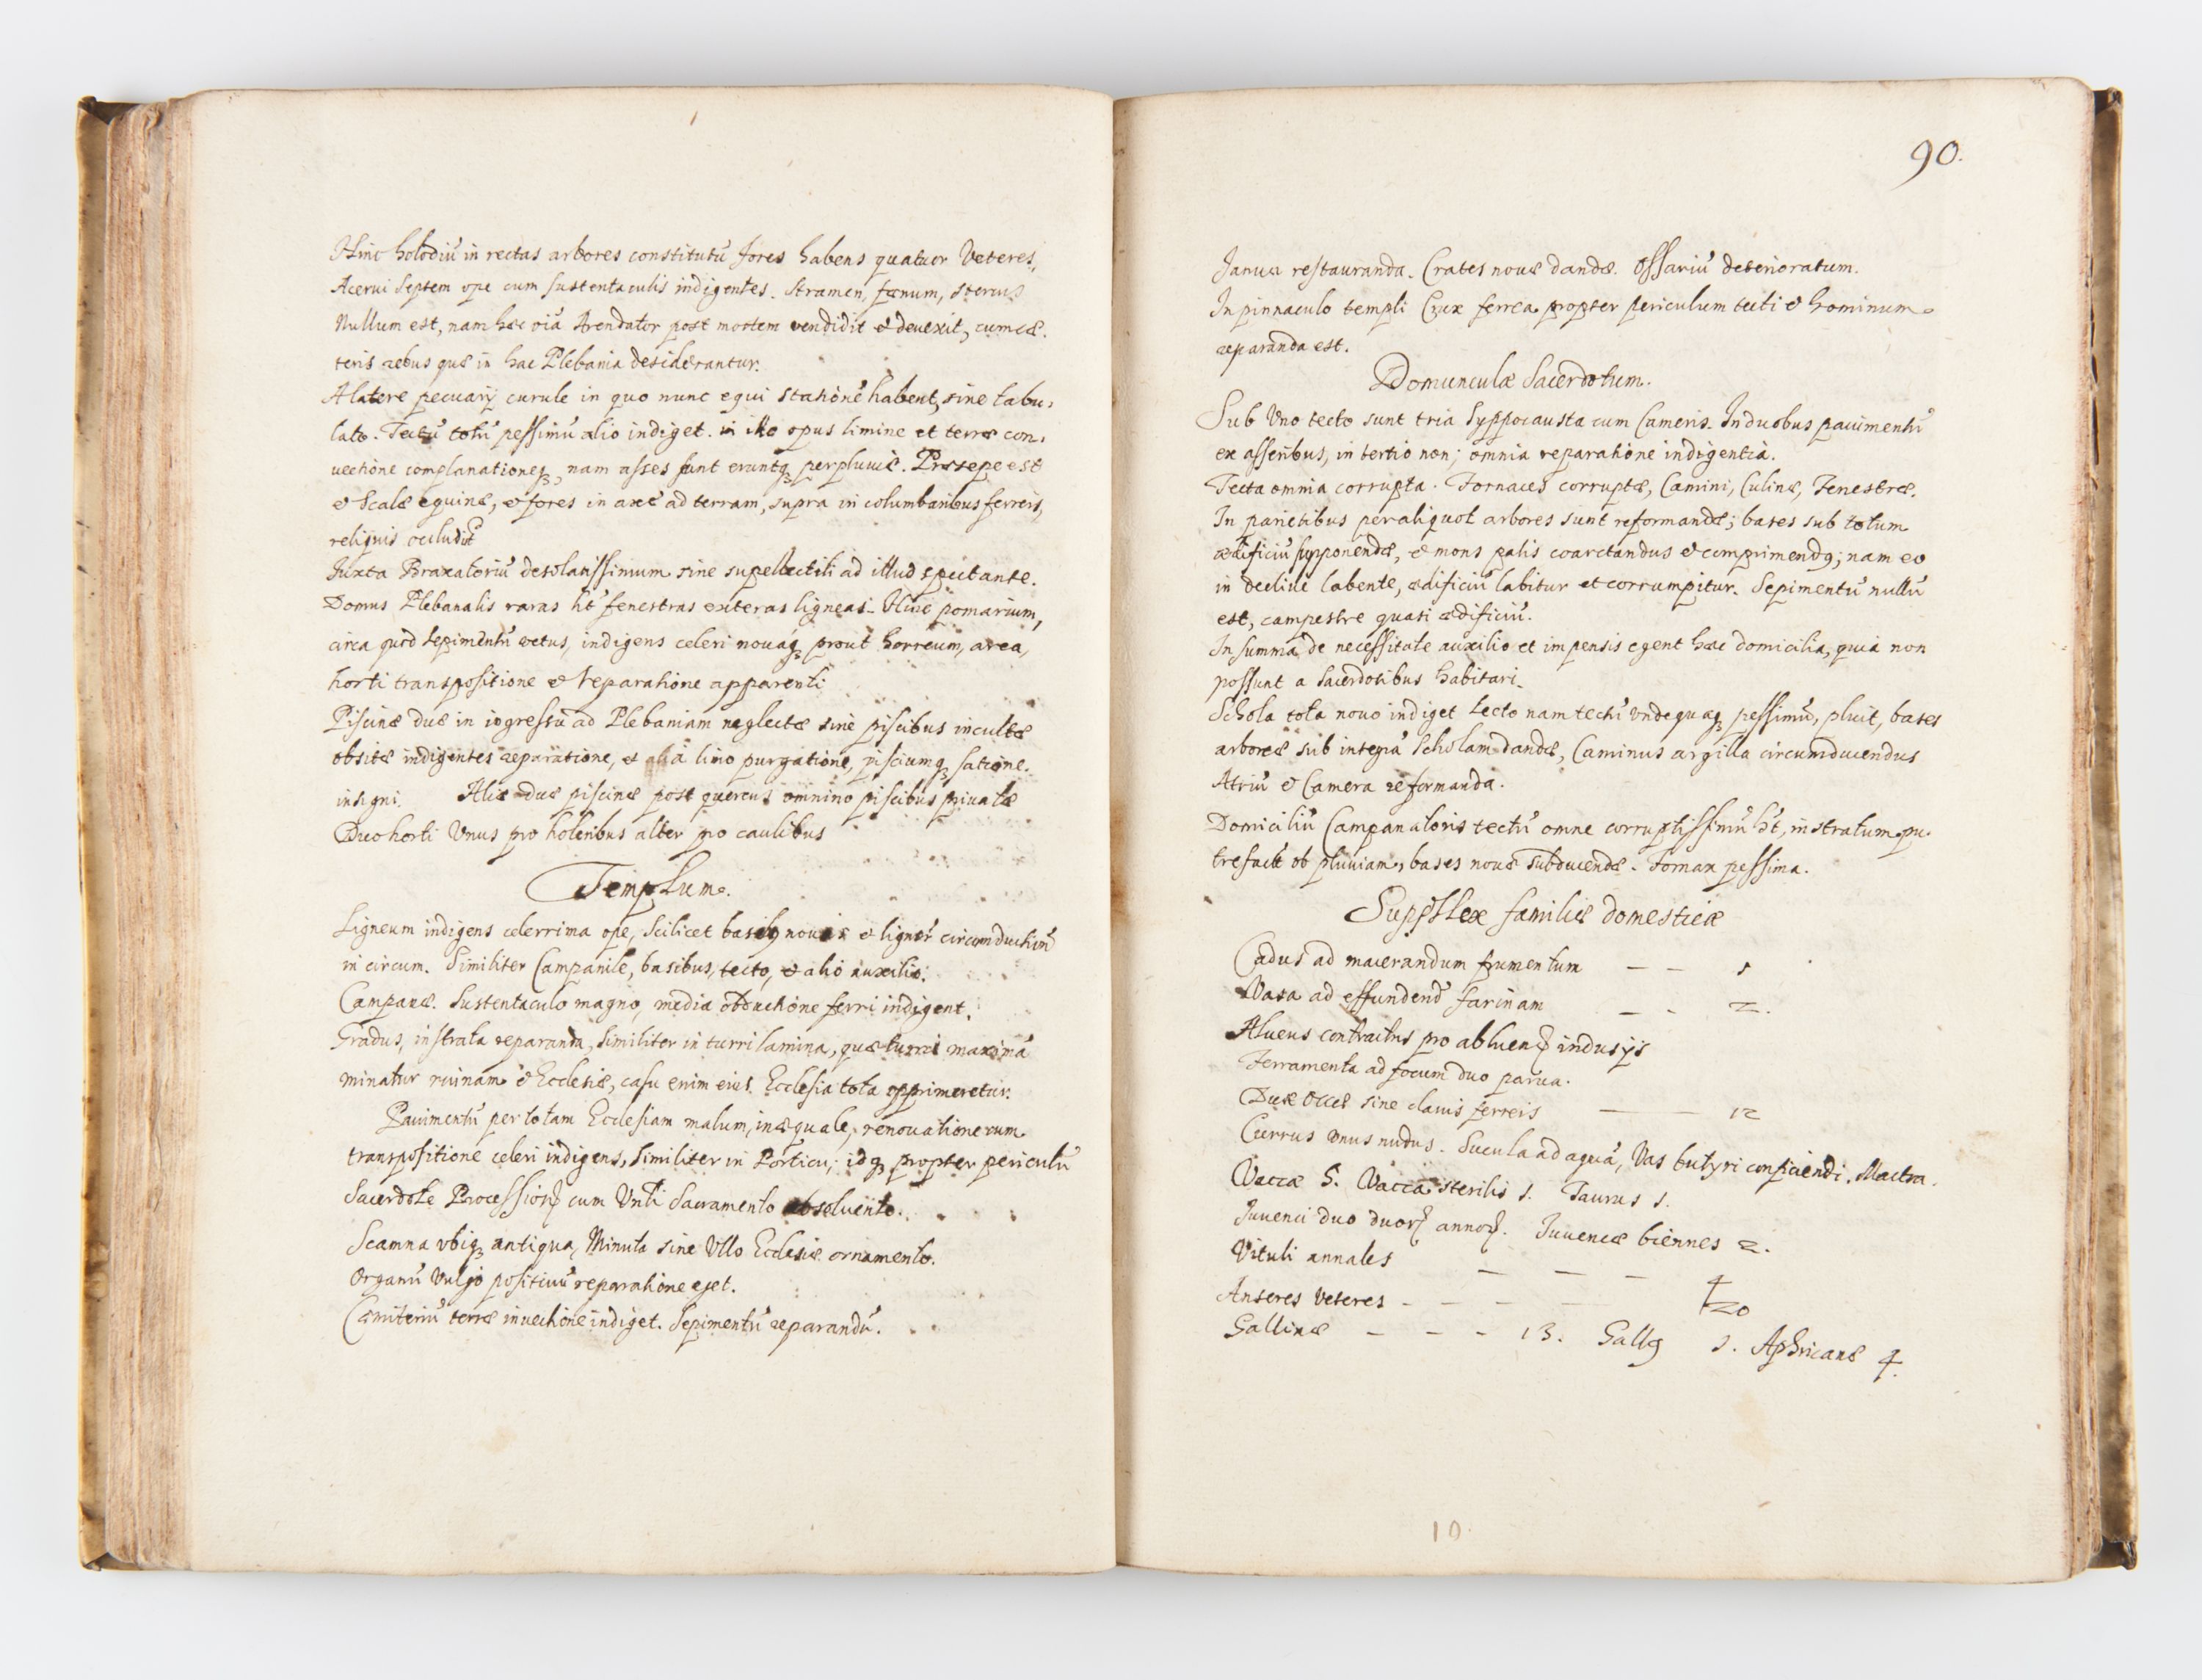 Hinc holodiū in rectas arbores constitutū fores habens quatuor Veteres,
Acerui Septem ope cum sustentaculis indigentes. Stramen, fœnum, stercus
Nullum est, nam hæc oīa Arendator post mortem vendidit & deuexit, cum cæ-
teris rebus quæ in hac Plebania desiderantur.
A latere pecuarij curule in quo nunc equi stationē habent, sine tabu-
lato. Tectū totū pessimū alio indiget. in illo opus limine et terræ con-
uectione complanationeq₃, nam asses sunt eruntq₃ perpluuiæ. Præsepe est
& Scalæ equinæ, & fores in axe ad terram, supra in columbaribus ferreis,
reliquis
Iuxta Braxatoriū desolatissimum sine supellectili ad illud spectante.
Domus Plebanalis raras ht̄ fenestras exteras ligneas. Huic pomarium,
circa quod sepimentū vetus, indigens celeri nouaq₃ prout horreum, area,
horti transpositione & reparatione apparenti
Piscinæ duæ in ingressu ad Plebaniam neglectæ sine piscibus incultæ
obsitæ indigentes reparatione, et alia limo purgatione, pisciumq₃ satione.
insigni. Aliæ duæ piscinæ post quercus omnino piscibus priuatæ
Duo horti Vnus pro holeribus alter pro caulibus
Templum.
Ligneum indigens celerrima ope, Scilicet basibꝰ nouis & lignor̄ circumductiōn̄
in circum. Similiter Campanile, basibus, tecto, & alio auxilio.
Campanæ. Sustentaculo magno, media obductione ferri indigent.
Gradus, instrata reparanda, Similiter in turri lamina, quæ turri maximā
minatur ruinam & Ecclesiæ, casu enim eius Ecclesia tota opprimeretur.
Pauimentū per totam Ecclesiam malum, inæquale, renouatione cum
transpositione celeri indigens, Similiter in Porticu, idq₃ propter periculū
Sacerdote Procession̄ cum Vn̄li Sacramento absoluente.
Scamna vbiq₃ antiqua, Minuta sine Vllo Ecclesiæ ornamento.
Organū Vulgo positiuū reparatione eget.
Cæmiteriū terræ inuectione indiget. Sepimentū reparandū.
90.
Ianua restauranda. Crates nouæ dandæ. Ossariū deterioratum.
In pinnaculo templi Crux ferrea propter periculum tecti & hominum
reparanda est.
Domunculæ Sacerdotum.
Sub Vno tecto sunt tria Hyppocausta cum Cameris. In duobus pauimentū
ex asseribus, in tertio non; omnia reparatione indigentia.
Tecta omnia corrupta. Fornaces corruptæ, Camini, Culinæ, Fenestræ.
In parietibus per aliquot arbores sunt reformandæ; bases sub totum
ædificiū supponendæ, & mons palis coarctandus & comprimendꝰ; nam eo
in decliue labente, ædificiū labitur et corrumpitur. Sepimentū nullū
est, campestre quasi ædificiū.
In summa de necessitate auxilio et impensis egent hæc domicilia, quia non
possunt a Sacerdotibus habitari.
Schola tota nouo indiget tecto nam tectū vndequaq₃ pessimū, pluit, bases
arboreæ sub integrā Scholam dandæ, Caminus argilla circumducendus
Atriū & Camera reformanda.
Domiciliū Campanatoris tectū omne corruptissimū ht̄, instratum pu-
trefacit ob pluuiam, bases nouæ subducendæ. Fornax pessima.
Supellex familiæ domesticæ
Cadus ad macerandum frumentum — — 1
Vasa ad effundend̄ farinam — - 2.
Alueus contractus pro abluend̄ indusijs
Ferramenta ad focum duo parua.
Duæ Occæ sine clauis ferreis — — 12
Currus vnus nudus. Sucula ad aquā, Vas butyri conficiendi. Mactra.
Vaccæ 5. Vacca sterilis 1. Taurus 1.
Iuuenci duo duor̄ annor̄. Iuuencæ biennes 2.
Vituli annales — — — 4
Anseres Veteres - — — — 20
Gallinæ — — - 13. Gallꝰ 1. Aphricanæ 4.
10.